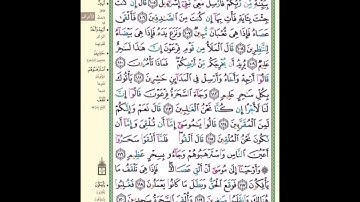 بَيِّنَةٍ مِّن رَّبِّكُمْ فَأَرْسِلْ مَعِيَ بَنِي إِسْرَائِيلَ قَالَ إِن كُنتَ
جِئْتَ بِآيَةٍ فَأْتِ بِهَا إِن كُنتَ مِنَ الصَّادِقِينَ فَأَلْقَى
عَصَاهُ فَإِذَا هِيَ ثُعْبَانٌ مُّبِينٌ وَنَزَعَ يَدَهُ فَإِذَا هِيَ بَيْضَاءُ
لِلنَّاظِرِينَ قَالَ الْمَلَأُ مِن قَوْمِ فِرْعَوْنَ إِنَّ هَذَا لَسَاحِرٌ
عَلِيمٌ يُرِيدُ أَن يُخْرِجَكُم مِّنْ أَرْضِكُمْ فَمَاذَا تَأْمُرُونَ
قَالُوا أَرْجِهْ وَأَخَاهُ وَأَرْسِلْ فِي الْمَدَائِنِ حَاشِرِينَ يَأْتُوكَ
بِكُلِّ سَاحِرٍ عَلِيمٍ وَجَاءَ السَّحَرَةُ فِرْعَوْنَ قَالُوا إِنَّ
لَنَا لَأَجْرًا إِن كُنَّا نَحْنُ الْغَالِبِينَ قَالَ نَعَمْ وَإِنَّكُمْ
لَمِنَ الْمُقَرَّبِينَ قَالُوا يَا مُوسَى إِمَّا أَن تُلْقِيَ وَإِمَّا أَن
نَّكُونَ نَحْنُ الْمُلْقِينَ قَالَ أَلْقُوا فَلَمَّا أَلْقَوْا سَحَرُوا
أَعْيُنَ النَّاسِ وَاسْتَرْهَبُوهُمْ وَجَاءُوا بِسِحْرٍ عَظِيمٍ
وَأَوْحَيْنَا إِلَى مُوسَى أَنْ أَلْقِ عَصَاكَ فَإِذَا هِيَ تَلْقَفُ مَا
يَأْفِكُونَ فَوَقَعَ الْحَقُّ وَبَطَلَ مَا كَانُوا يَعْمَلُونَ فَغُلِبُوا
هُنَالِكَ وَانقَلَبُوا صَاغِرِينَ وَأُلْقِيَ السَّحَرَةُ سَاجِدِينَ